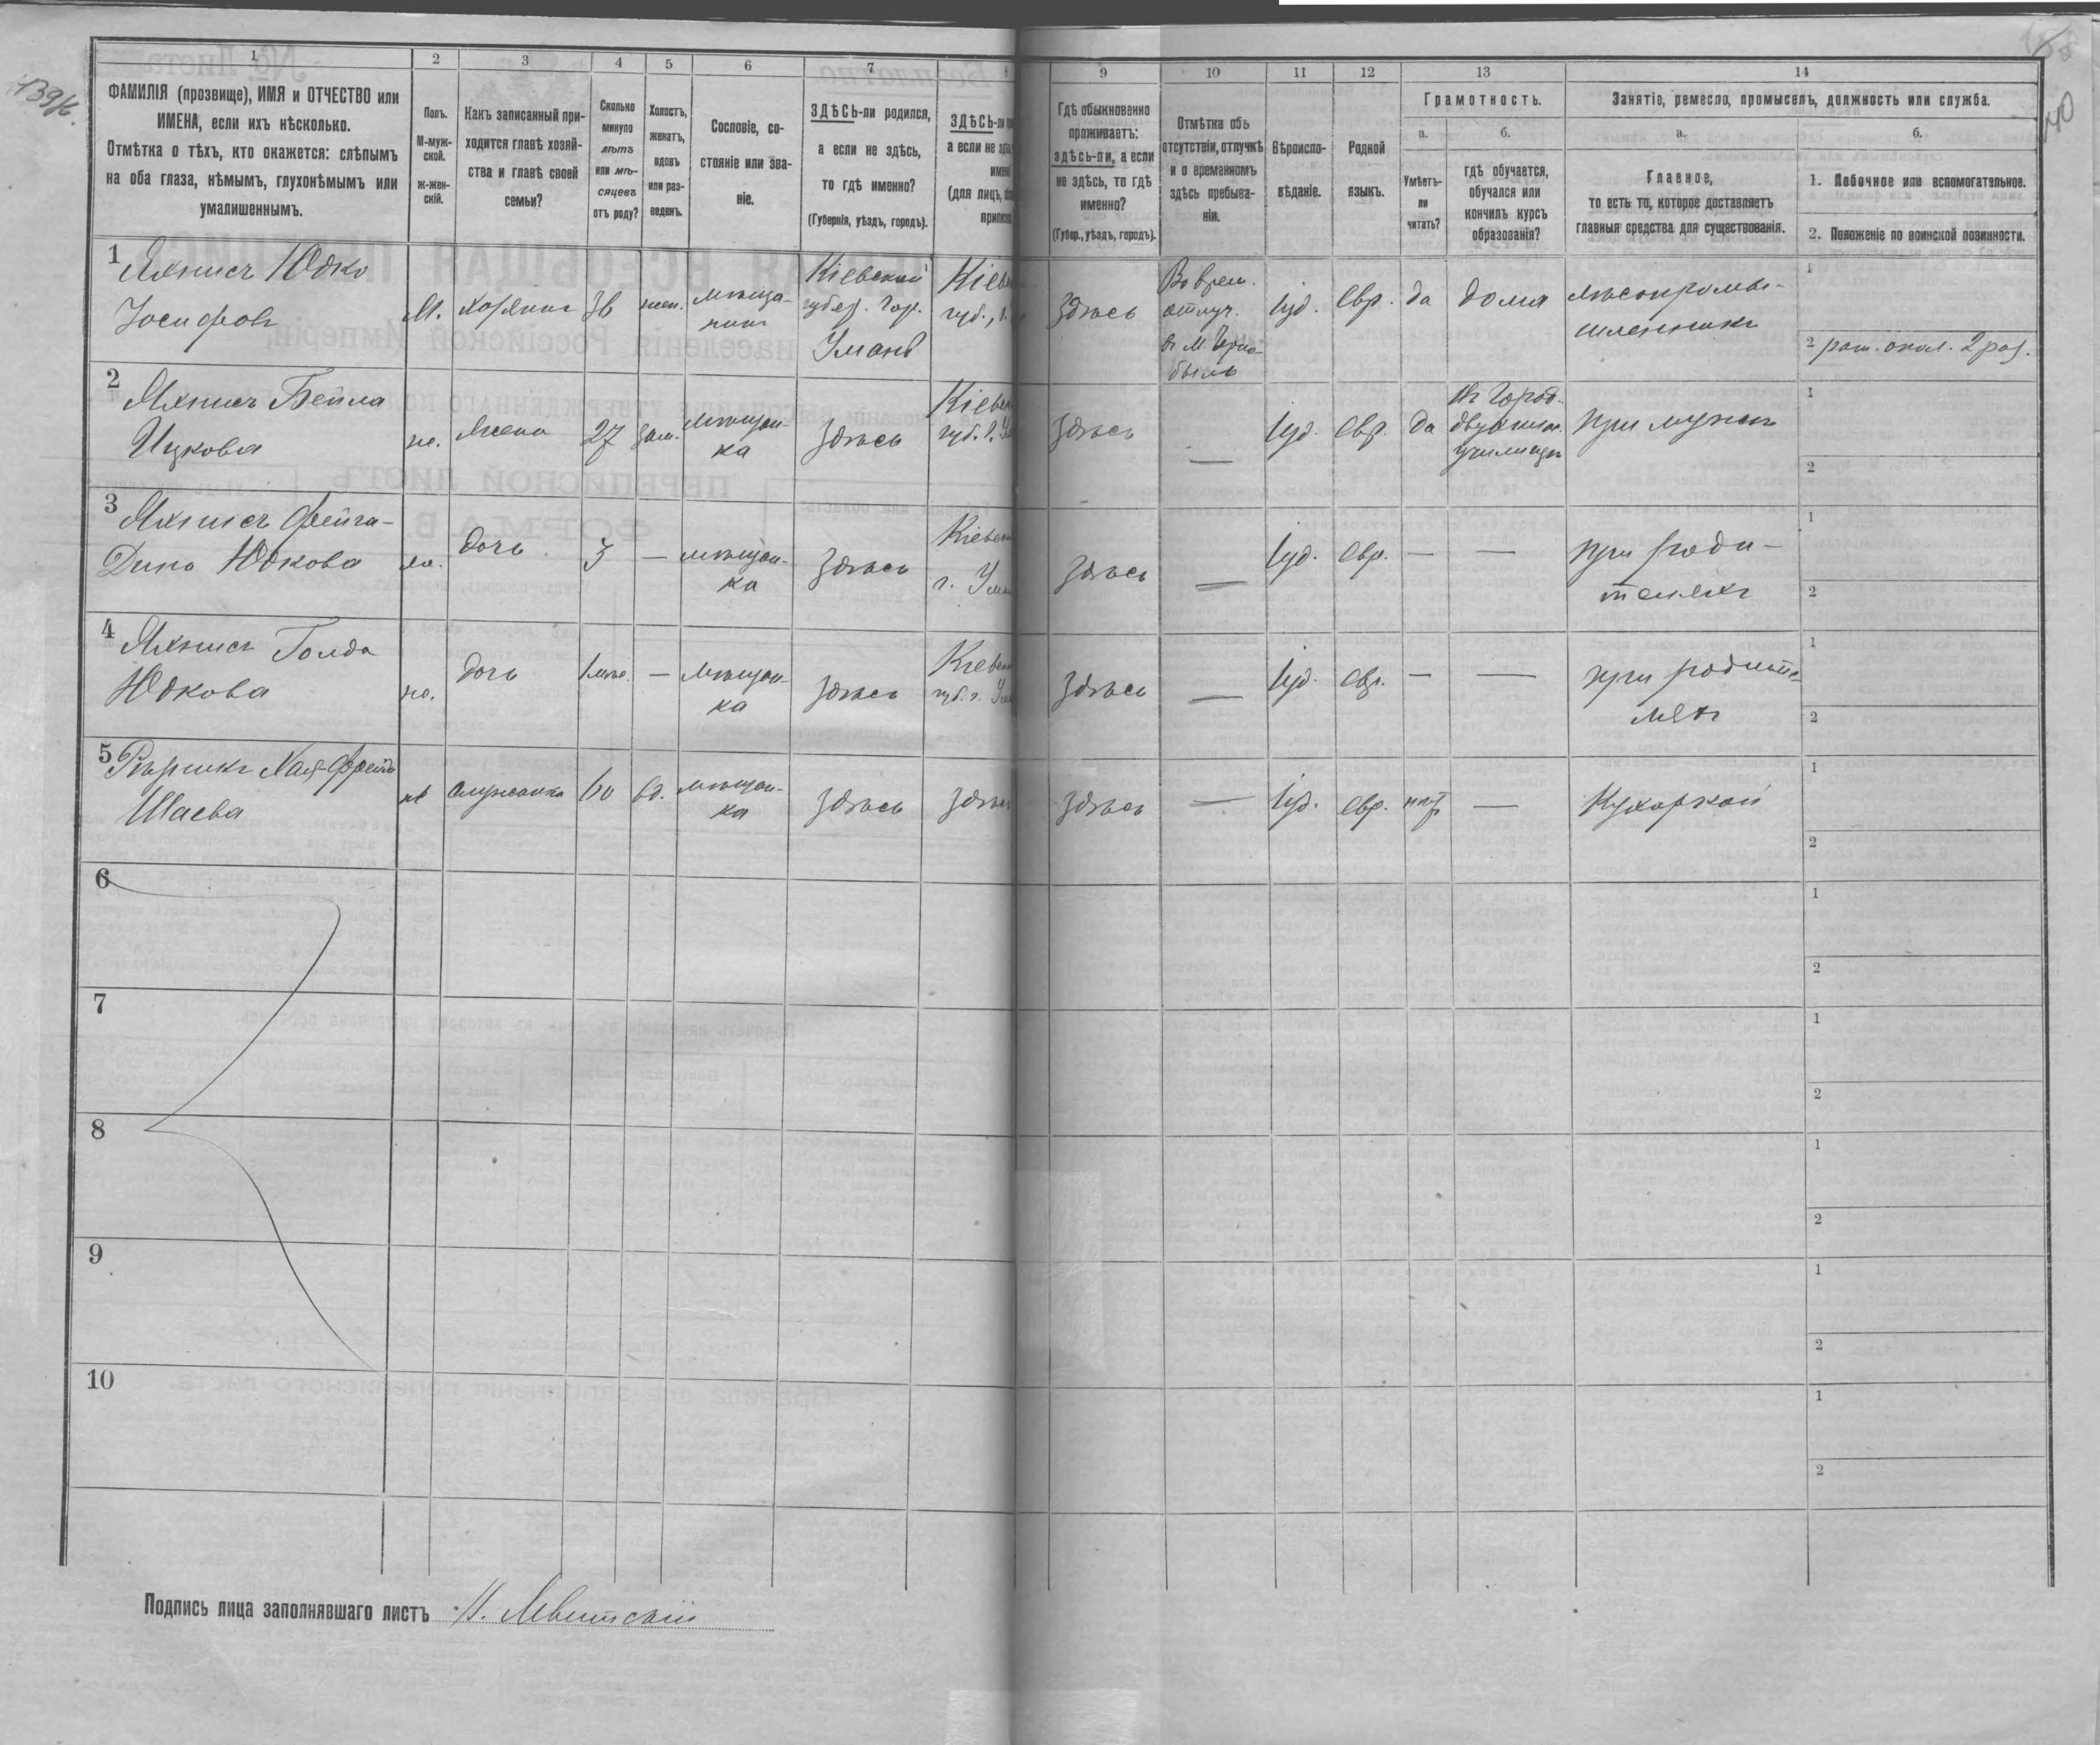 139/к.
1
2
3
4
5
6
7
8
9
10
11
12
13
14
ФАМИЛІЯ (прозвище), ИМЯ и ОТЧЕСТВО или
ИМЕНА, если ихъ нѣсколько.
Отмѣтка о тѣхъ, кто окажется: слѣпымъ
на оба глаза, нѣмымъ, глухонѣмымъ или
умалишеннымъ.
Полъ.
М-муж-
ской.
ж-жен-
скій.
Какъ записанный при-
ходится главѣ хозяй-
ства и главѣ своей
семьи?
Сколько
минуло
лѣтъ
или мѣ-
сяцевъ
отъ роду?
Холостъ,
женатъ,
вдовъ
или раз-
веденъ.
Сословіе, со-
стояніе или зва-
ніе.
ЗДѢСЬ-ли родился,
а если не здѣсь,
то гдѣ именно?
(Губернія, уѣздъ, городъ).
ЗДѢСЬ-ли
а если не
(для лицъ,
Гдѣ обыкновенно
проживаетъ:
здѣсь-ли, а если
не здѣсь, то гдѣ
именно?
(Губер., уѣздъ, городъ).
Отмѣтка объ
отсутствіи, отлучкѣ
и о временномъ
здѣсь пребыва-
ніи.
Вѣроиспо-
вѣданіе.
Родной
языкъ.
Грамотность.
а.
б.
Умѣетъ-
ли
читать?
гдѣ обучается,
обучался или
кончилъ курсъ
образованія?
Занятіе, ремесло, промыселъ, должность или служба.
а.
б.
Главное,
то есть то, которое доставляетъ
главныя средства для существованія.
1. Побочное или вспомогательное.
2. Положеніе по воинской повинности.
1
Яхнисъ Юдко
Іосифовъ
М.
хозяинъ
36
жен.
мѣща-
нинъ
Кіевской
губер. гор.
Умань
Кіев
губ., г.
здѣсь
Во врем.
отлуч.
въ М. Черно-
быль
Іуд.
Евр.
да
дома
лѣсопромы-
шленникъ
1
2 рат. опол. 2 раз.
2
Яхнисъ Бейла
Ицкова
ж.
жена
27
зам.
мѣщан-
ка
здѣсь
Кіев
губ. г. Ум
здѣсь
—
Іуд.
Евр.
да
въ Город.
двуклас.
училищѣ
при мужѣ
1
2
3
Яхнисъ Фейга-
Дина Юдкова
ж.
дочь
3
—
мѣщан-
ка
здѣсь
Кіев
г. Ума
здѣсь
—
Іуд.
Евр.
—
—
при роди-
теляхъ
1
2
4
Яхнисъ Голда
Юдкова
ж.
дочь
—
мѣщан-
ка
здѣсь
Кіев
губ. г. Ум
здѣсь
—
Іуд.
Евр.
—
—
при родите-
ляхъ
1
2
5
Хая-Фрейда
Шаева
ж
служанка
60
вд.
мѣщан-
ка
здѣсь
здѣсь
здѣсь
—
Іуд.
Евр.
нѣт
—
Кухаркой
1
2
6
1
2
7
1
2
8
1
2
9
1
2
10
1
2
Подпись лица заполнявшаго листъ Н. Левитскій